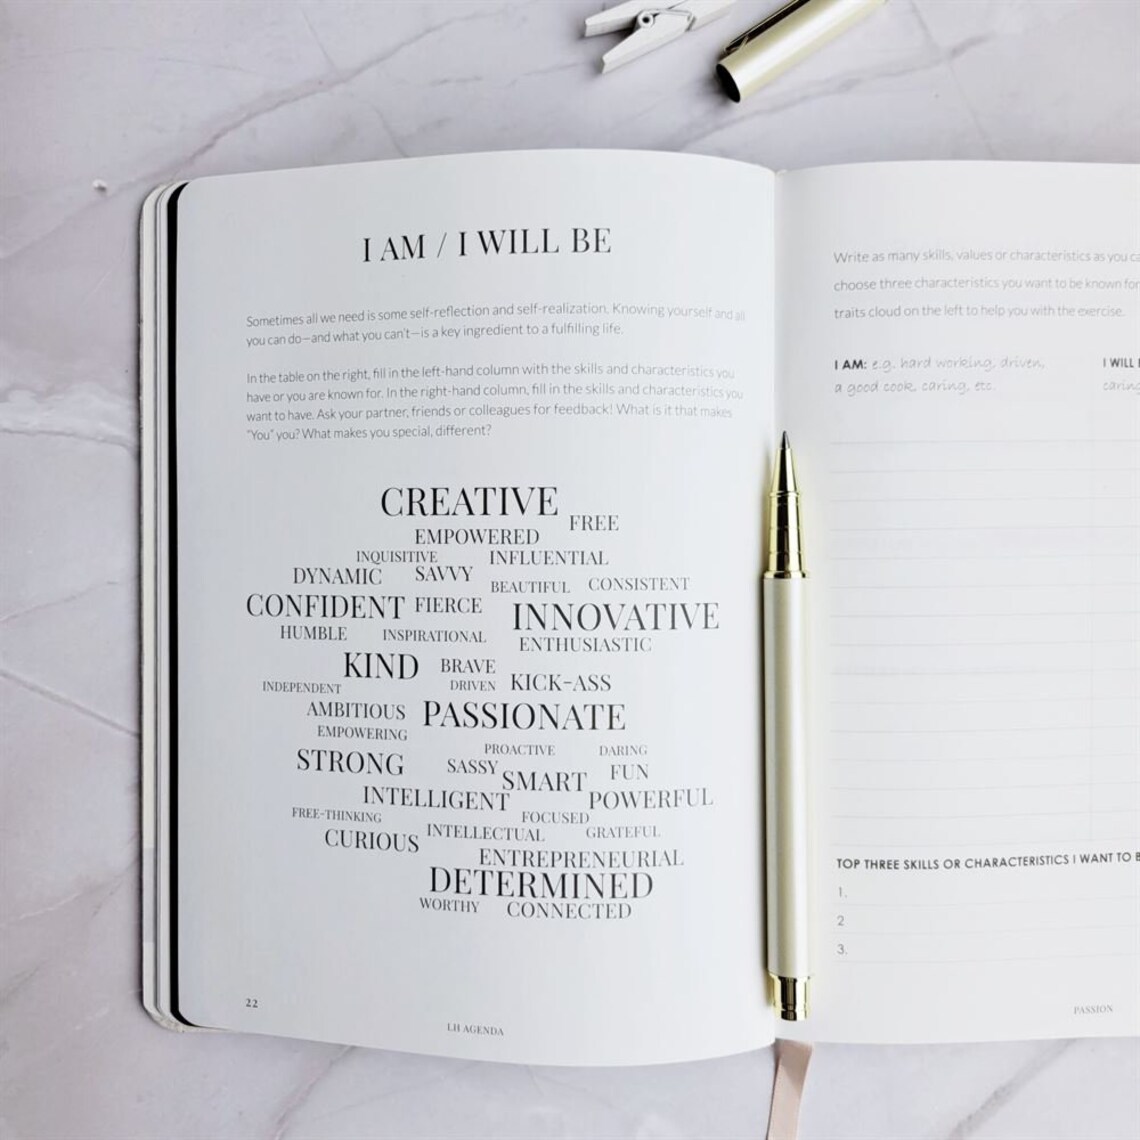 I AM / I WILL BE
Sometimes all we need is some self-reflection and self-realization. Knowing yourself and all
you can do—and what you can't—is a key ingredient to a fulfilling life.
In the table on the right, fill in the left-hand column with the skills and characteristics you
have or you are known for. In the right-hand column, fill in the skills and characteristics you
want to have. Ask your partner, friends or colleagues for feedback! What is it that makes
"You" you? What makes you special, different?
CREATIVE
FREE
EMPOWERED
INQUISITIVE INFLUENTIAL
DYNAMIC SAVVY BEAUTIFUL CONSISTENT
CONFIDENT FIERCE INNOVATIVE
HUMBLE INSPIRATIONAL ENTHUSIASTIC
KIND BRAVE
INDEPENDENT DRIVEN KICK-ASS
AMBITIOUS PASSIONATE
EMPOWERING
PROACTIVE DARING
STRONG SASSY SMART FUN
INTELLIGENT POWERFUL
FREE-THINKING FOCUSED
CURIOUS INTELLECTUAL GRATEFUL
ENTREPRENEURIAL
DETERMINED
WORTHY CONNECTED
22
LH AGENDA
Write as many skills, values or characteristics as you
choose three characteristics you want to be known for
traits cloud on the left to help you with the exercise.
I AM: e.g. hard working, driven,
a good cook, caring, etc.
I WILL
TOP THREE SKILLS OR CHARACTERISTICS I WANT TO
1.
2
3.
PASSION